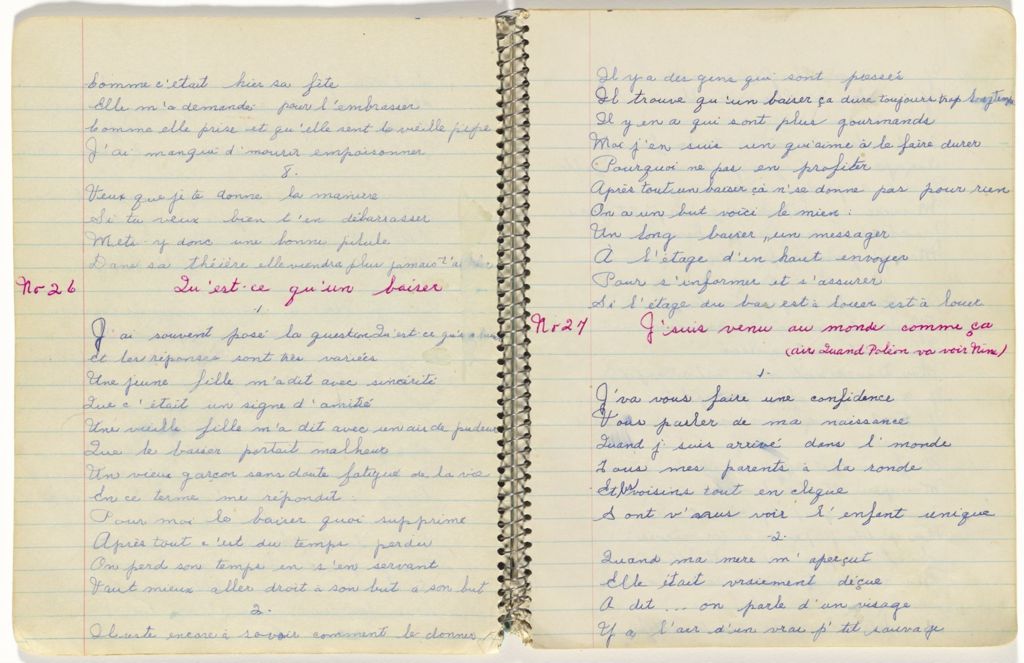 Comme c'était hier sa fête
Elle m'a demandé pour l'embrasser
Comme elle prise et qu'elle sent la vieille pipe
J'ai manqué d'mourir empoisonner
8.
Veux que je te donne la manière
Si tu veux bien t'en débarrasser
Mets-y donc une bonne pilule
Dans sa théière elle viendra plus jamais t'
No 26 Qu'est-ce qu'un baiser
1.
J'ai souvent posé la question Qu'est ce qu'un
Et les réponses sont très variées
Une jeune fille m'a dit avec sincérité
Que c'était un signe d'amitié
Une vieille fille m'a dit avec un air de pudeur
Que le baiser portait malheur
Un vieux garçon sans doute fatigué de la vie
En ce terme me répondit :
Pour moi le baiser quoi supprime
Après tout c'est du temps perdu
On perd son temps en s'en servant
Vaut mieux aller droit à son but à son but
2.
Il reste encore à savoir comment le donner
Il y a des gens qui sont pressés
Il trouve qu'un baiser ça dure toujours trop longtemps
Il y en a qui sont plus gourmands
Moi j'en suis un qui aime à le faire durer
Pourquoi ne pas en profiter
Après tout un baiser çà n'se donne pas pour rien
On a un but voici le mien :
Un long baiser, un messager
À l'étage d'en haut envoyer
Pour s'informer et s'assurer
Si l'étage du bas est à louer est à louer
No 27 J'suis venu au monde comme ça
(air Quand Poléon va voir Nini)
1.
J'va vous faire une confidence
Vous parler de ma naissance
Quand j'suis arrivé dans l'monde
Tous mes parents à la ronde
Et les voisins tout en clique
Sont v'nus voir l'enfant unique
2.
Quand ma mère m'aperçut
Elle était vraiement déçue
A dit ... on parle d'un visage
Y a l'air d'un vrai p'tit sauvage